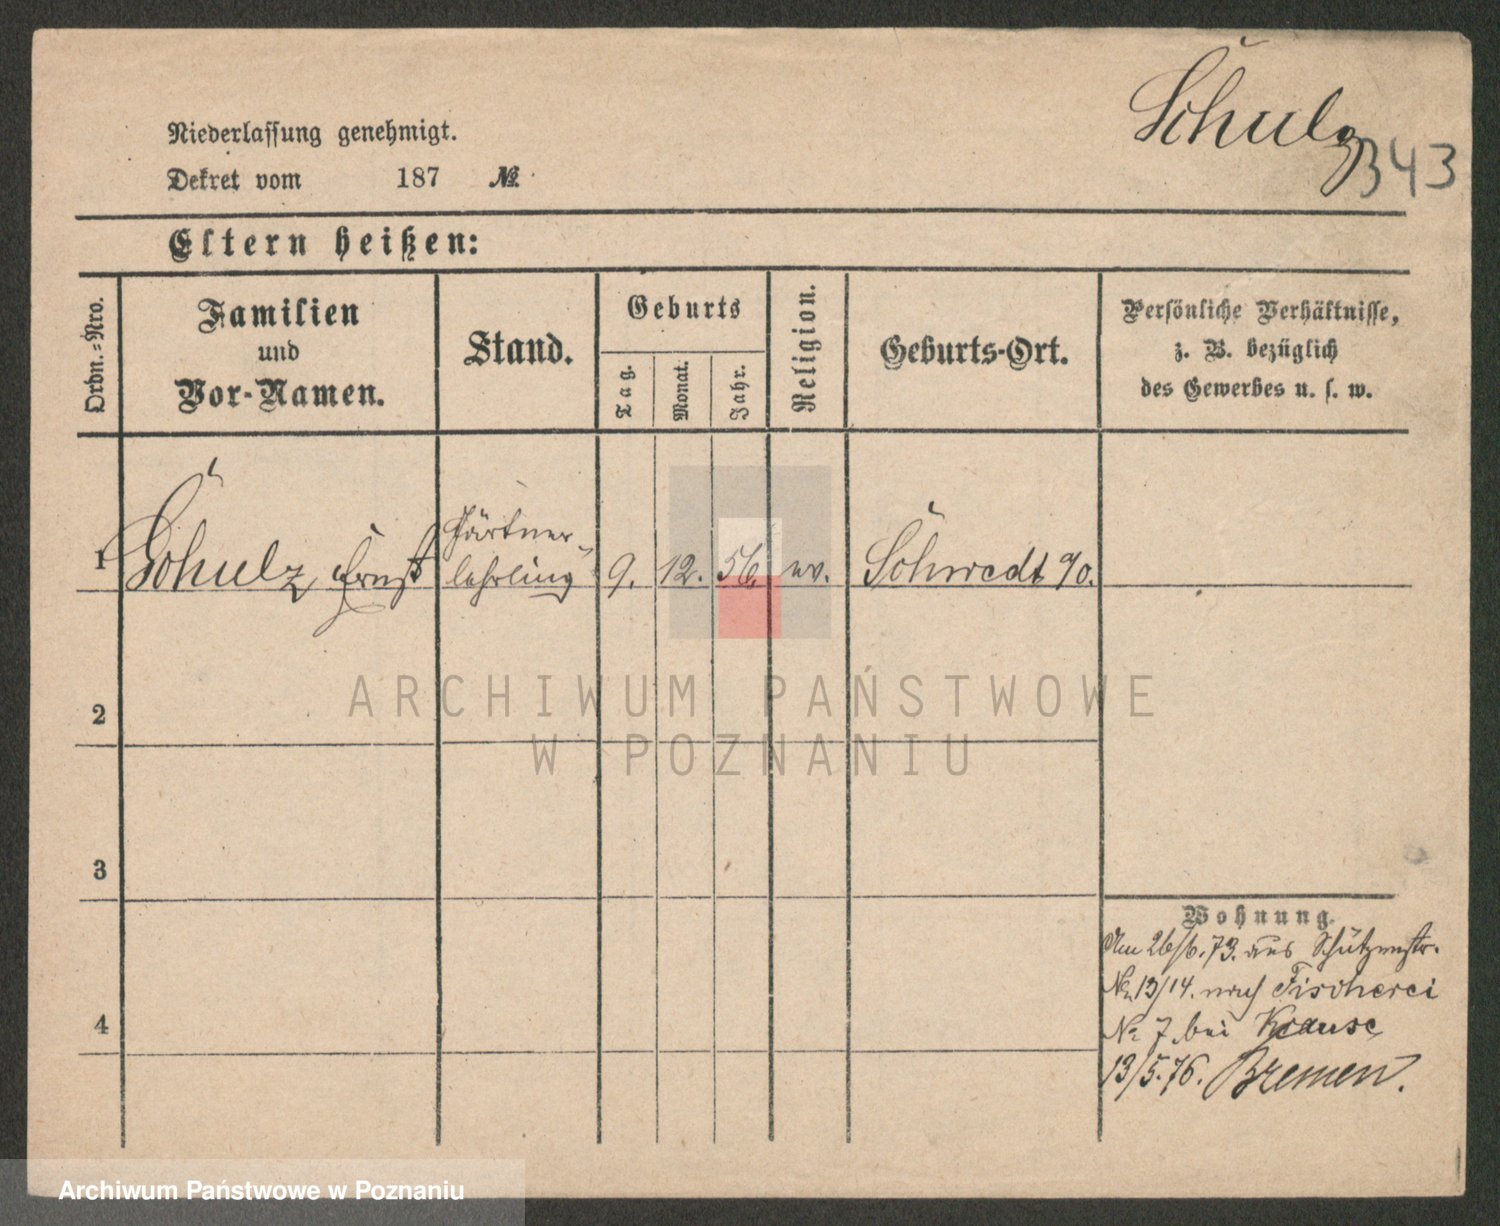 Schulz
343
Niederlassung genehmigt.
Dekret vom 187 №
Eltern heißen:
Ordn.=Nro.
Familien
und
Vor-Namen.
Stand.
Geburts
Tag.
Monat.
Jahr.
Religion.
Geburts-Ort.
Persönliche Verhältnisse,
z. B. bezüglich
des Gewerbes u. s. w.
1 Schulz, Ernst Gärtner-
lehrling 9. 12. 56. ev. Schwedt a/O.
2
3
4
Wohnung.
Am 26/6.73. aus Schützenstr.
No 13/14. nach Fischerei
No 7 bei Krause
13/5.76. Bremen.
ARCHIWUM PAŃSTWOWE
W POZNANIU
Archiwum Państwowe w Poznaniu